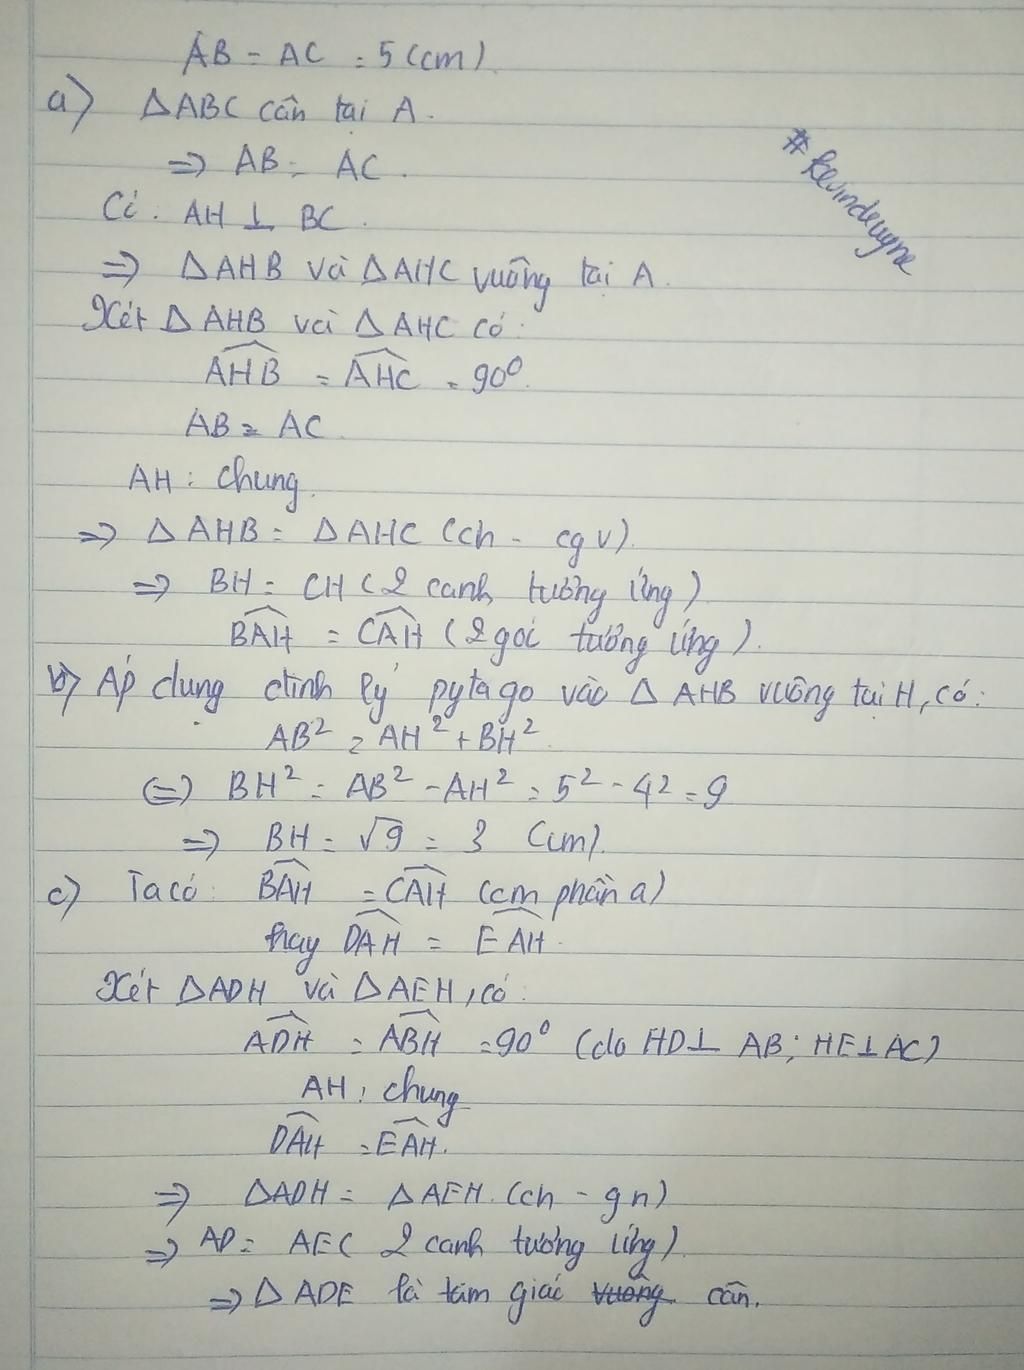 AB = AC = 5 (cm)
a) ΔABC cân tại A.
=> AB = AC.
Có: AH ⊥ BC.
=> ΔAHB và ΔAHC vuông tại A.
#kevindeuyne
Xét ΔAHB và ΔAHC có:
\widehat{AHB} = \widehat{AHC} = 90⁰.
AB = AC.
AH: chung.
=> ΔAHB = ΔAHC (ch - cgv).
=> BH = CH (2 cạnh tương ứng)
\widehat{BAH} = \widehat{CAH} (2 góc tương ứng).
b) Áp dụng định lý pytago vào ΔAHB vuông tại H, có:
AB² = AH² + BH²
<=> BH² = AB² - AH² = 5² - 4² = 9
=> BH = √9 = 3 (cm).
c) Ta có: \widehat{BAH} = \widehat{CAH} (cm phần a)
hay \widehat{DAH} = \widehat{EAH}.
Xét ΔADH và ΔAEH, có:
\widehat{ADH} = \widehat{ABH} = 90⁰ (do HD ⊥ AB; HE ⊥ AC)
AH: chung
\widehat{DAH} = \widehat{EAH}.
=> ΔADH = ΔAEH. (ch - gn)
=> AD = AE (2 cạnh tương ứng).
=> ΔADE là tam giác vuông cân.